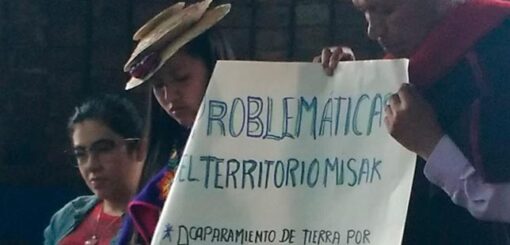 ROBLEMATICAS
EL TERRITORIO MISAK
* ACAPARAMIENTO DE TIERRA POR